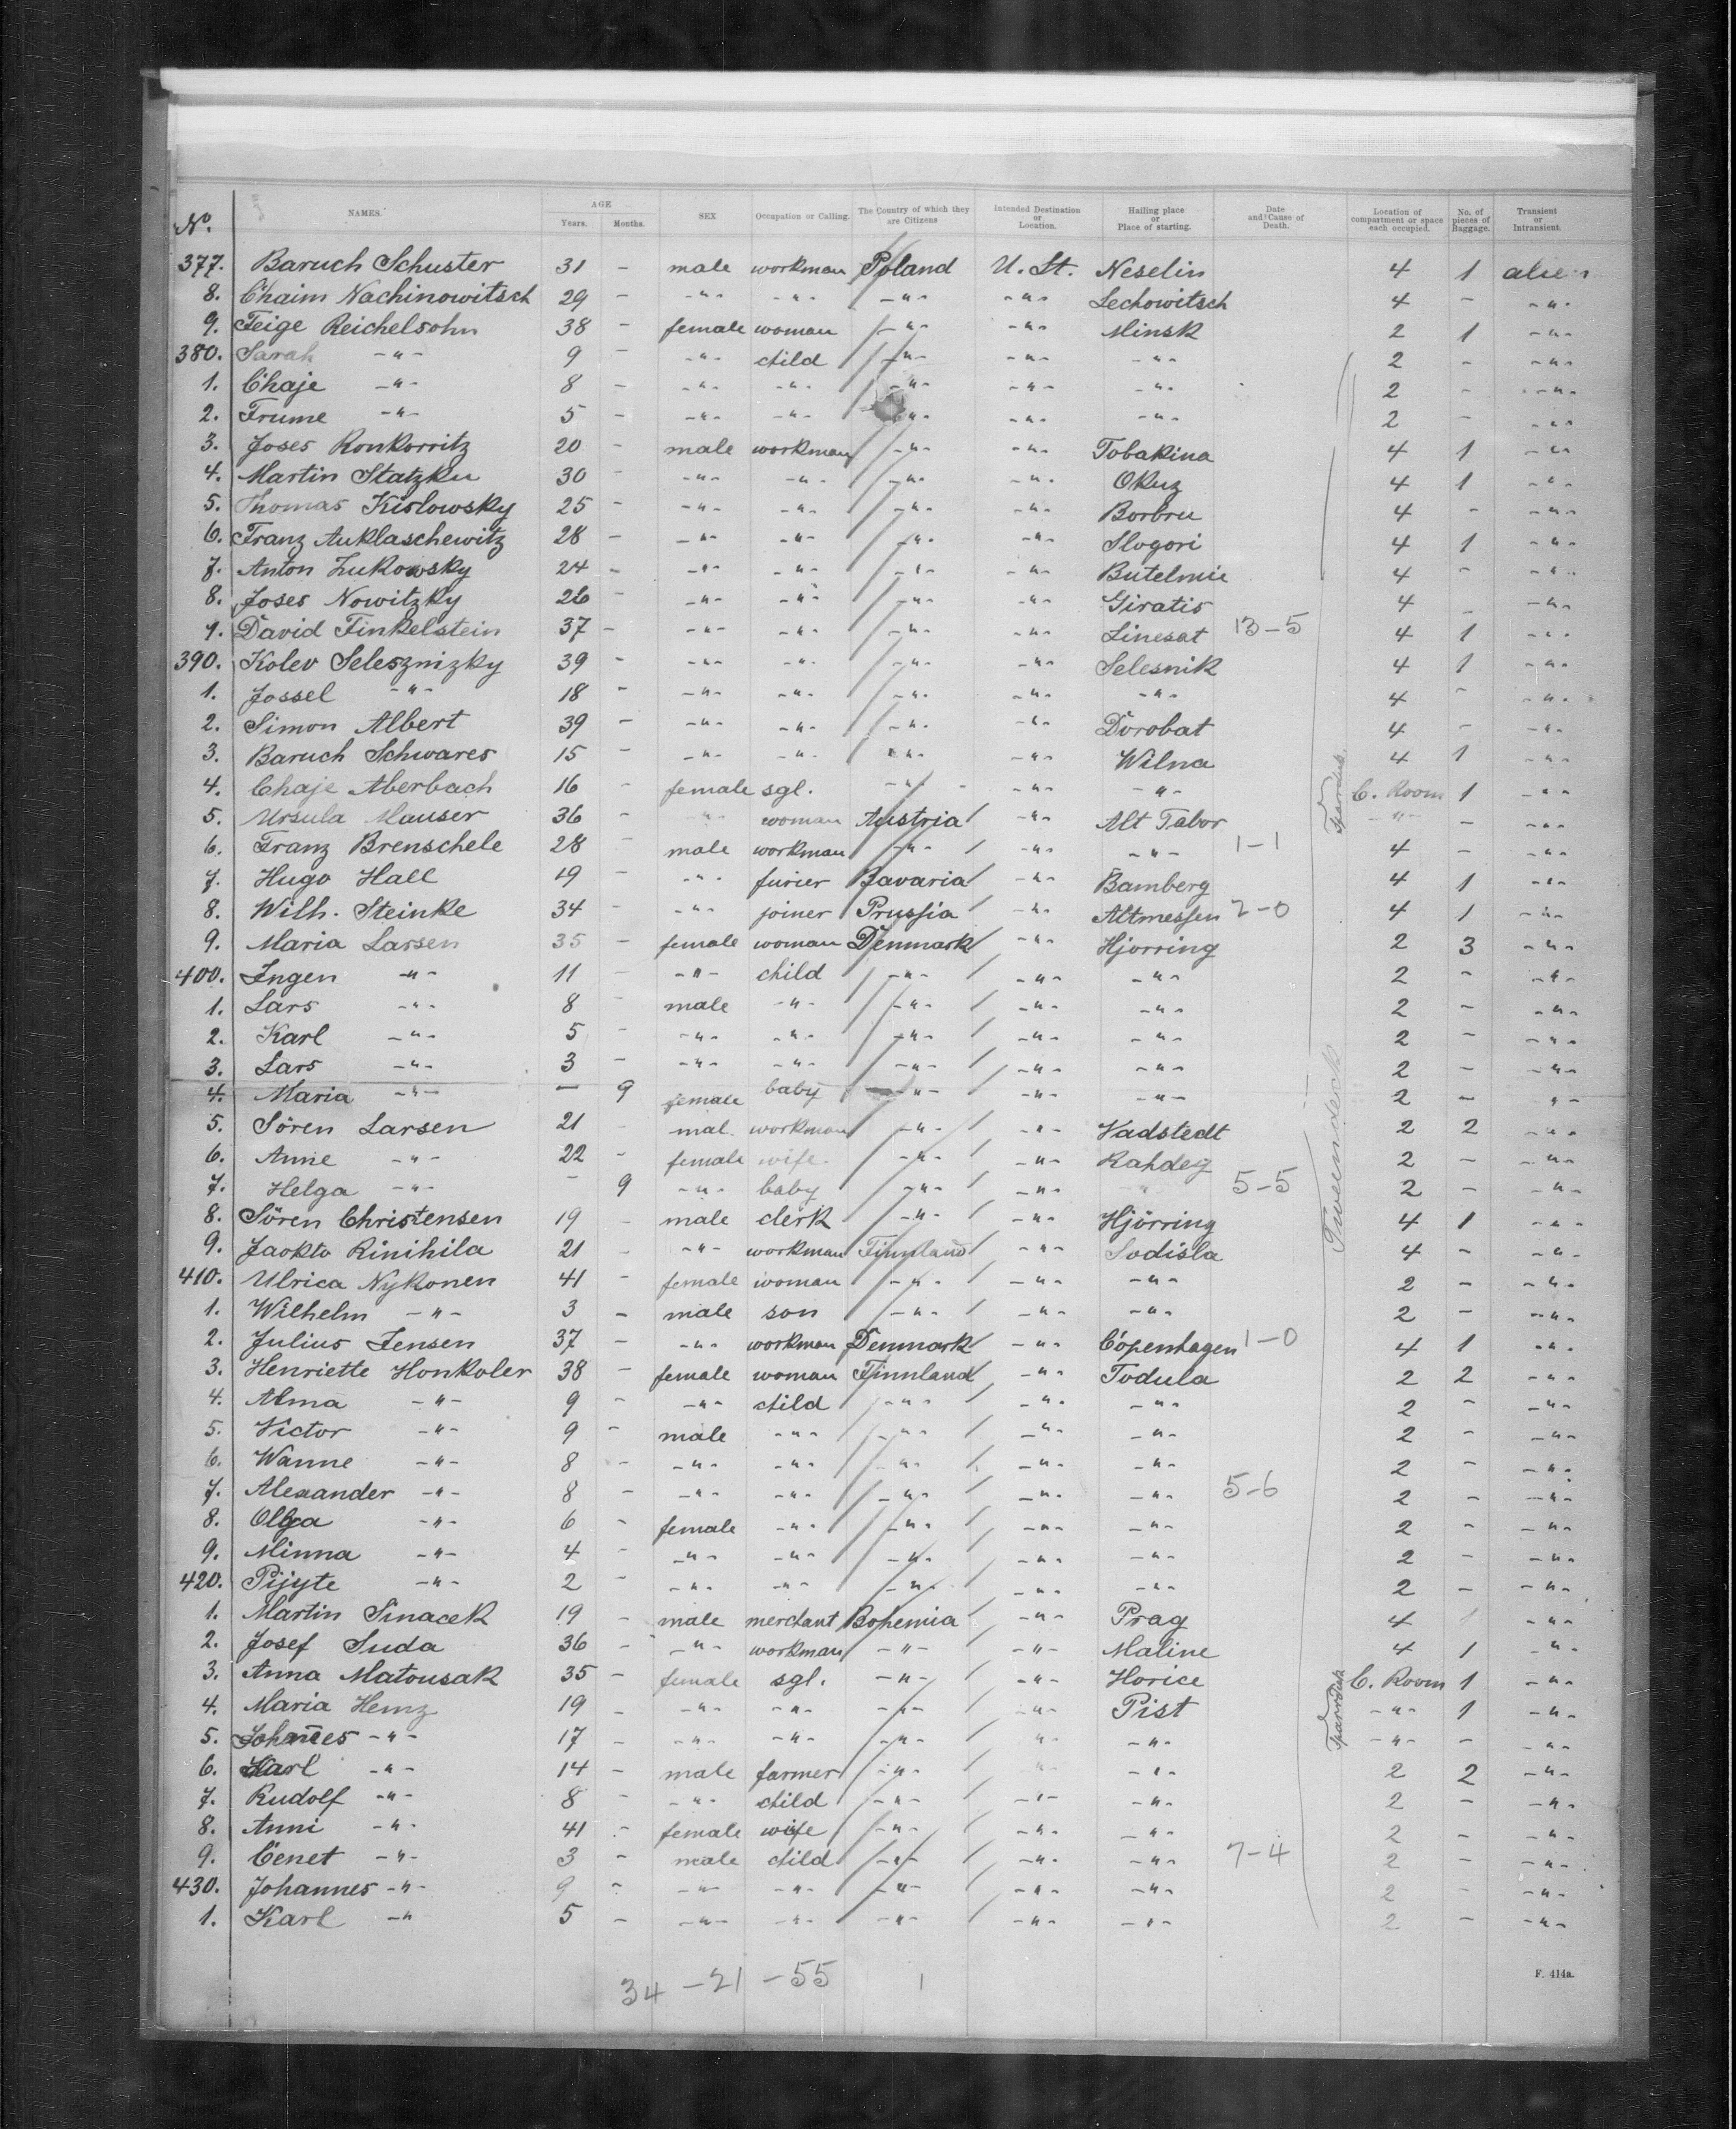 No. NAMES. AGE Years. Months. SEX Occupation or Calling. The Country of which they are Citizens Intended Destination or Location. Hailing place or Place of starting. Date and Cause of Death. Location of compartment or space each occupied. No. of pieces of Baggage. Transient or Intransient.
377. Baruch Schuster 31 - male workman Poland U. St. Neselin 4 1 alien
8. Chaim Nachinowitsch 29 - -"- -"- -"- -"- Lechowitsch 4 - -"-
9. Feige Reichelsohn 38 - female woman -"- -"- Minsk 2 1 -"-
380. Sarah -"- 9 - -"- child -"- -"- -"- 2 - -"-
1. Chaje -"- 8 - -"- -"- -"- -"- -"- 2 - -"-
2. Frume -"- 5 - -"- -"- -"- -"- -"- 2 - -"-
3. Joses Ronkorritz 20 - male workman -"- -"- Tobakina 4 1 -"-
4. Martin Statzku 30 - -"- -"- -"- -"- Okuz 4 1 -"-
5. Thomas Kislowsky 25 - -"- -"- -"- -"- Borbru 4 - -"-
6. Franz Auklaschewitz 28 - -"- -"- -"- -"- Slogori 4 1 -"-
7. Anton Zukowsky 24 - -"- -"- -"- -"- Butelmie 4 - -"-
8. Joses Nowitzky 26 - -"- -"- -"- -"- Giratis 4 - -"-
9. David Finkelstein 37 - -"- -"- -"- -"- Linesat 13-5 4 1 -"-
390. Kolev Selesznizky 39 - -"- -"- -"- -"- Selesnik 4 1 -"-
1. Jossel -"- 18 - -"- -"- -"- -"- -"- 4 - -"-
2. Simon Albert 39 - -"- -"- -"- -"- Dorobat 4 - -"-
3. Baruch Schwares 15 - -"- -"- -"- -"- Wilna 4 1 -"-
4. Chaje Aberbach 16 - female sgl. -"- -"- -"- C. Room 1 -"-
5. Ursula Mauser 36 - -"- woman Austria -"- Alt Tabor -"- - -"-
6. Franz Brenschele 28 - male workman -"- -"- -"- 1-1 4 - -"-
7. Hugo Hall 19 - -"- furier Bavaria -"- Bamberg 4 1 -"-
8. Wilh. Steinke 34 - -"- joiner Prussia -"- Altmessen 2-0 4 1 -"-
9. Maria Larsen 35 - female woman Denmark -"- Hjorring 2 3 -"-
400. Ingen -"- 11 - -"- child -"- -"- -"- 2 - -"-
1. Lars -"- 8 - male -"- -"- -"- -"- 2 - -"-
2. Karl -"- 5 - -"- -"- -"- -"- -"- 2 - -"-
3. Lars -"- 3 - -"- -"- -"- -"- -"- 2 - -"-
4. Maria -"- - 9 female baby -"- -"- -"- 2 - -"-
5. Sören Larsen 21 - mal. workman -"- -"- Vadstedt 2 2 -"-
6. Anne -"- 22 - female wife -"- -"- Rahdeg 2 - -"-
7. Helga -"- - 9 -"- baby -"- -"- -"- 5-5 2 - -"-
8. Sören Christensen 19 - male clerk -"- -"- Hjörring 4 1 -"-
9. Jaokto Rinihila 21 - -"- workman Finnland -"- Sodisla 4 - -"-
410. Ulrica Nykonen 41 - female woman -"- -"- -"- 2 - -"-
1. Wilhelm -"- 3 - male son -"- -"- -"- 2 - -"-
2. Julius Jensen 37 - -"- workman Denmark -"- Copenhagen 1-0 4 1 -"-
3. Henriette Honkoler 38 - female woman Finnland -"- Todula 2 2 -"-
4. Alma -"- 9 - -"- child -"- -"- -"- 2 - -"-
5. Victor -"- 9 - male -"- -"- -"- -"- 2 - -"-
6. Wanne -"- 8 - -"- -"- -"- -"- -"- 2 - -"-
7. Alexander -"- 8 - -"- -"- -"- -"- -"- 5-6 2 - -"-
8. Olga -"- 6 - female -"- -"- -"- -"- 2 - -"-
9. Minna -"- 4 - -"- -"- -"- -"- -"- 2 - -"-
420. Pijyte -"- 2 - -"- -"- -"- -"- -"- 2 - -"-
1. Martin Sinacek 19 - male merchant Bohemia -"- Prag 4 1 -"-
2. Josef Suda 36 - -"- workman -"- -"- Maline 4 1 -"-
3. Anna Matousak 35 - female sgl. -"- -"- Horice C. Room 1 -"-
4. Maria Hemz 19 - -"- -"- -"- -"- Pist -"- 1 -"-
5. Johanes -"- 17 - -"- -"- -"- -"- -"- -"- - -"-
6. Karl -"- 14 - male farmer -"- -"- 2 2 -"-
7. Rudolf -"- 8 - -"- child -"- -"- -"- 2 - -"-
8. Anni -"- 41 - female wife -"- -"- -"- 2 - -"-
9. Cenet -"- 3 - male child -"- -"- -"- 7-4 2 - -"-
430. Johannes -"- 9 - -"- -"- -"- -"- -"- 2 - -"-
1. Karl -"- 5 - -"- -"- -"- -"- -"- 2 - -"-
Tweendeck
34 - 21 - 55
F. 414a.